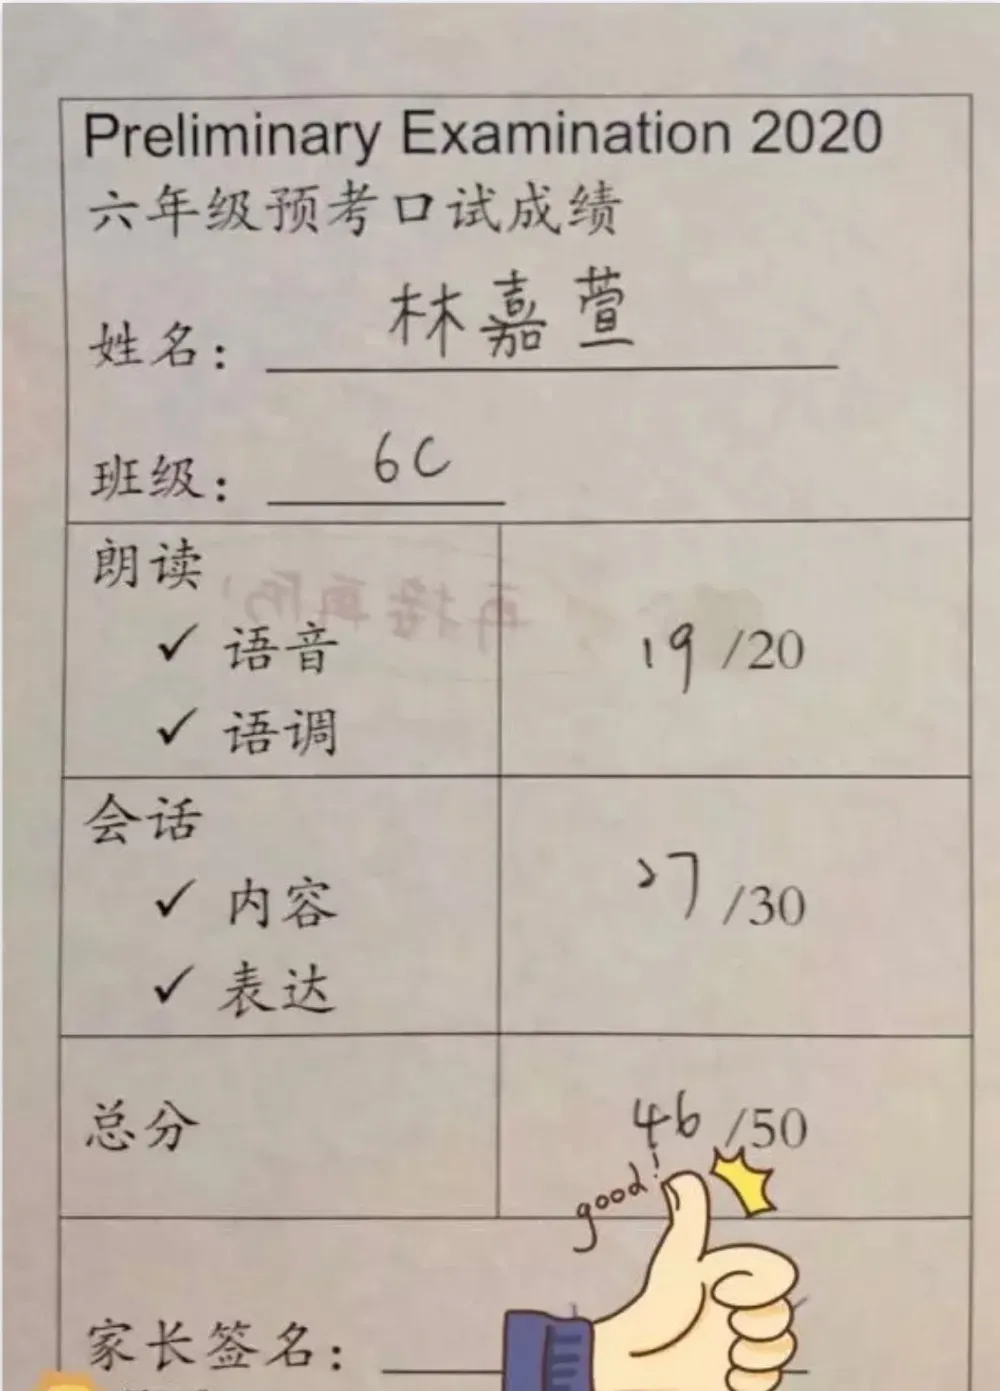 Preliminary Examination 2020
六年级预考口试成绩
姓名： 林嘉萱
班级： 6C
朗读
✓ 语音
✓ 语调
19 /20
会话
✓ 内容
✓ 表达
27 /30
总分
46 /50
good!
家长签名：